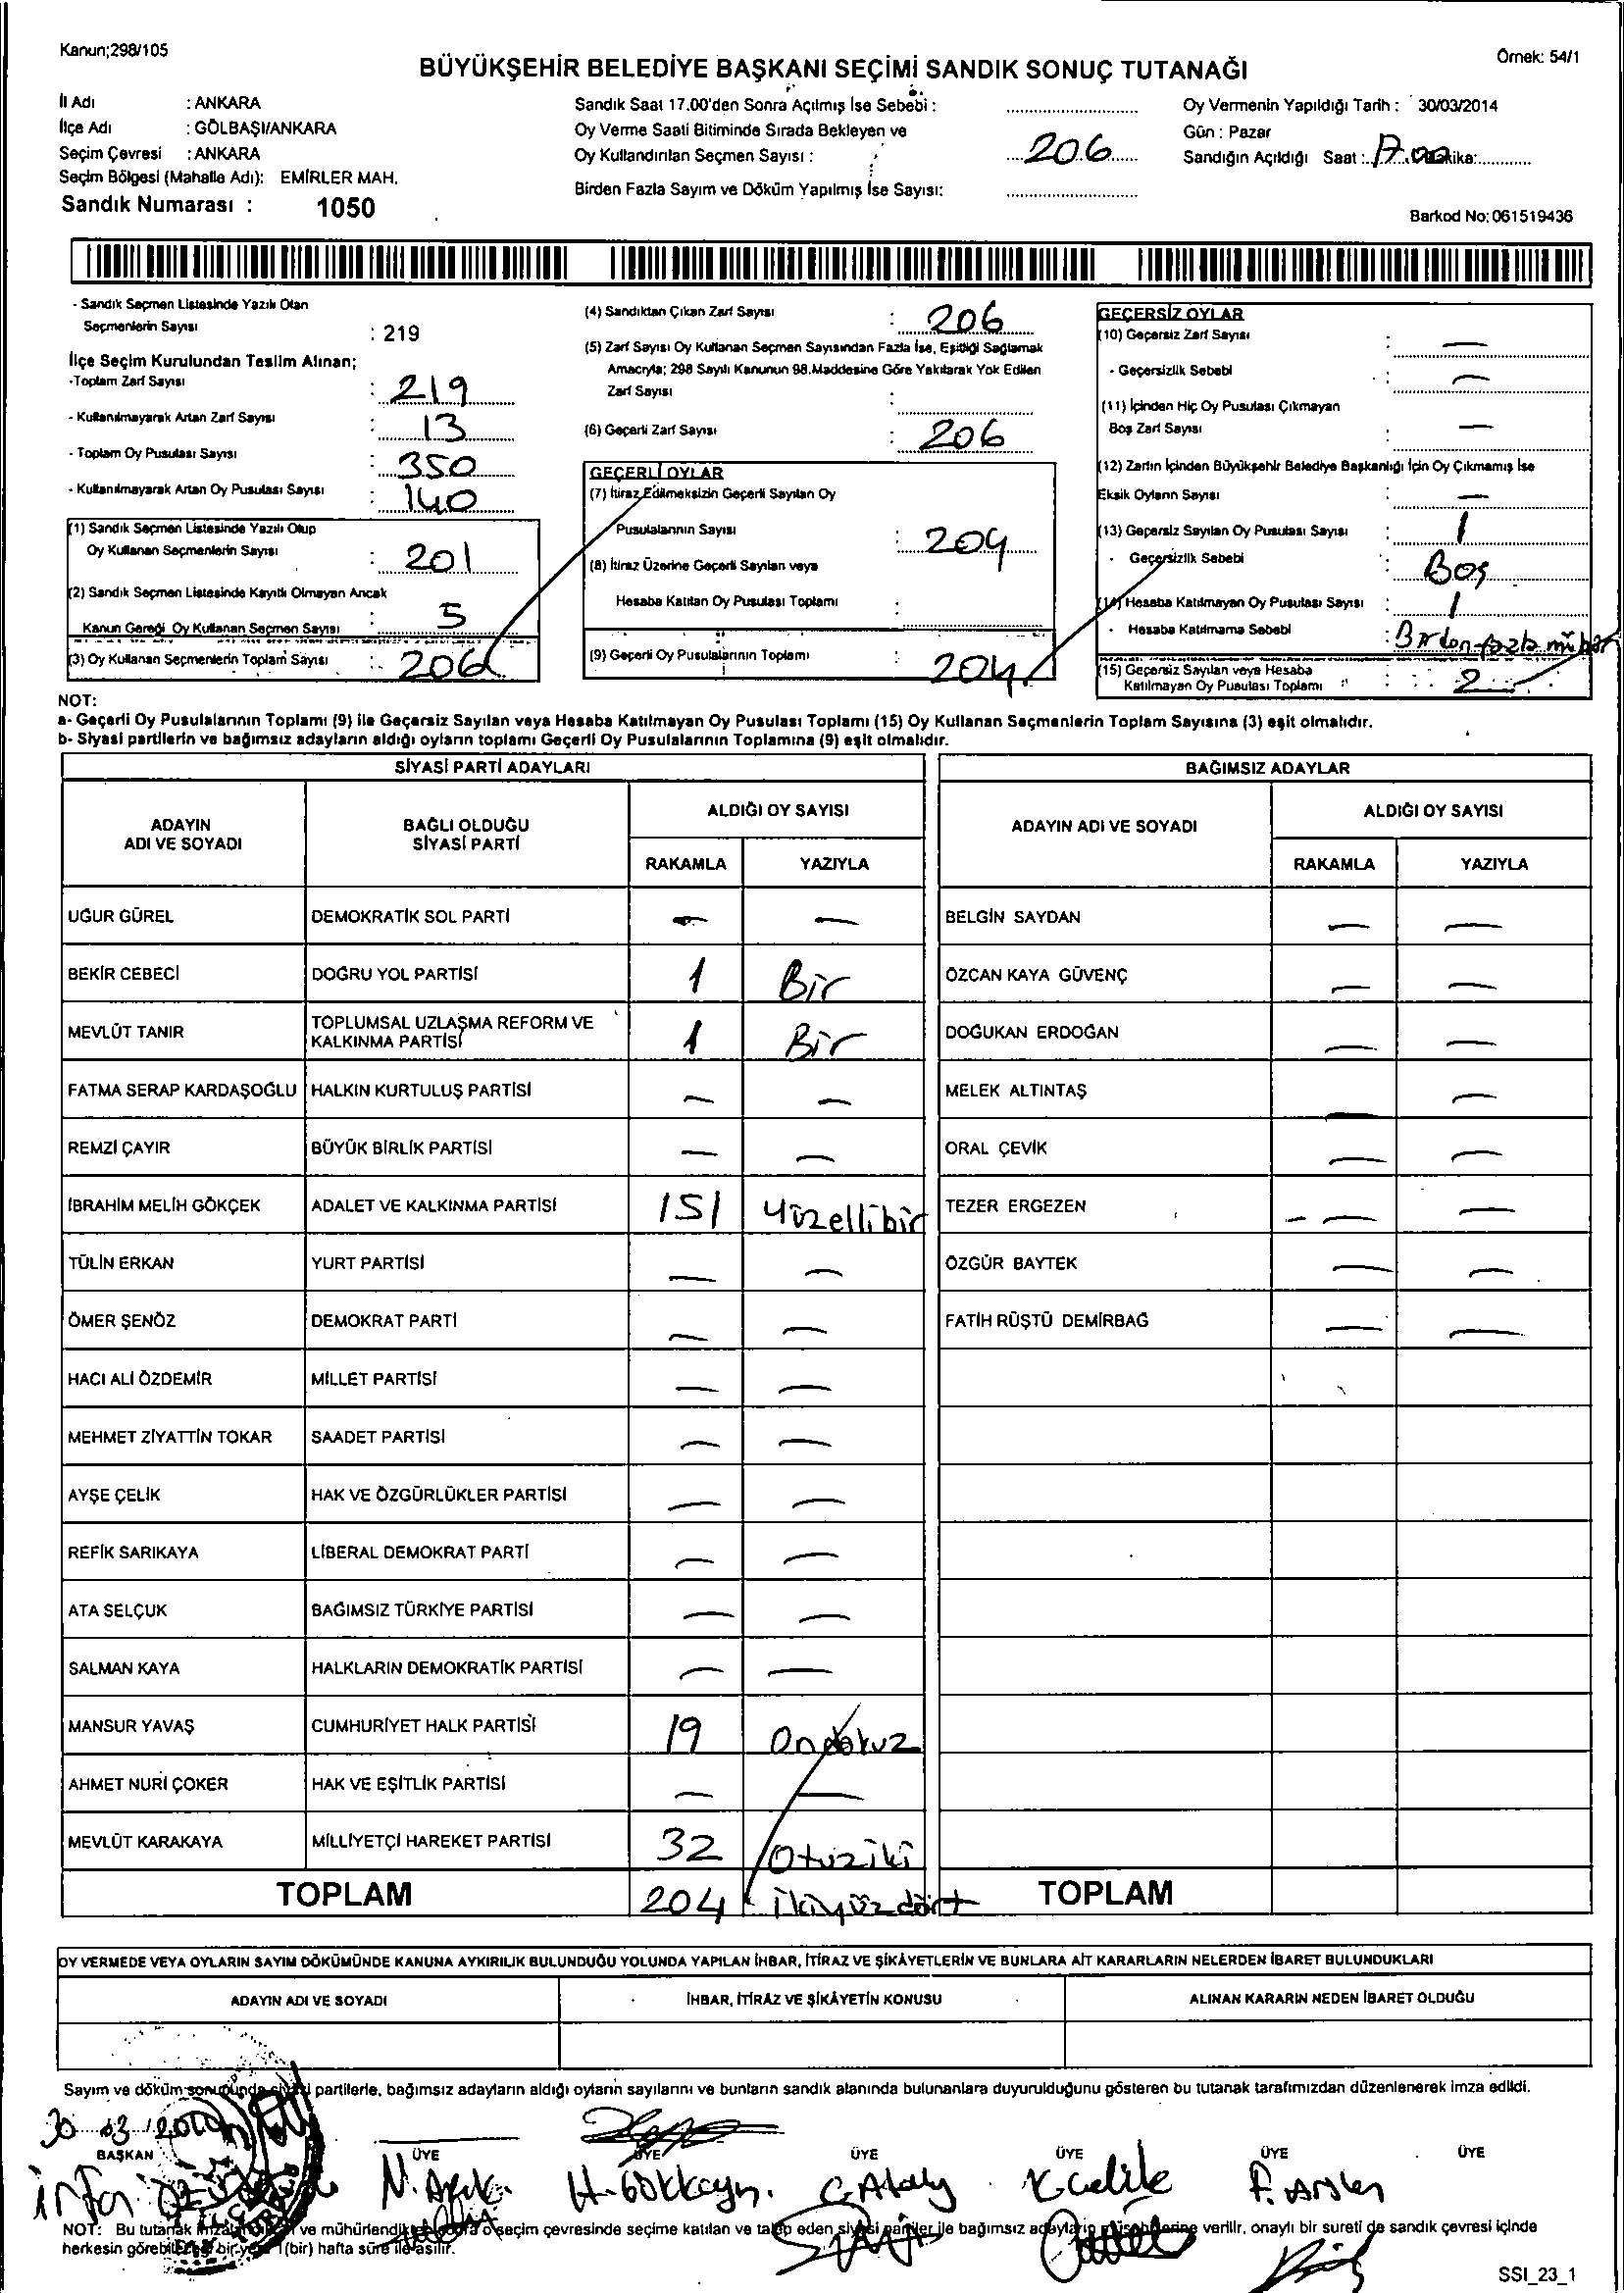 Kanun;298/105
Örnek: 54/1
BÜYÜKŞEHİR BELEDİYE BAŞKANI SEÇİMİ SANDIK SONUÇ TUTANAĞI
İl Adı : ANKARA
İlçe Adı : GÖLBAŞI/ANKARA
Seçim Çevresi : ANKARA
Seçim Bölgesi (Mahalle Adı): EMİRLER MAH.
Sandık Numarası : 1050
Sandık Saat 17.00'den Sonra Açılmış İse Sebebi :
Oy Verme Saati Bitiminde Sırada Bekleyen ve
Oy Kullandırılan Seçmen Sayısı : 206
Birden Fazla Sayım ve Döküm Yapılmış İse Sayısı:
Oy Vermenin Yapıldığı Tarih : 30/03/2014
Gün : Pazar
Sandığın Açıldığı Saat : 17.00
Barkod No: 061519436
- Sandık Seçmen Listesinde Yazılı Olan
Seçmenlerin Sayısı : 219
İlçe Seçim Kurulundan Teslim Alınan;
-Toplam Zarf Sayısı : 219
- Kullanılmayarak Artan Zarf Sayısı : 13
- Toplam Oy Pusulası Sayısı : 350
- Kullanılmayarak Artan Oy Pusulası Sayısı : 140
(1) Sandık Seçmen Listesinde Yazılı Olup
Oy Kullanan Seçmenlerin Sayısı : 201
(2) Sandık Seçmen Listesinde Kayıtlı Olmayan Ancak
Kanun Gereği Oy Kullanan Seçmen Sayısı : 5
(3) Oy Kullanan Seçmenlerin Toplam Sayısı : 206
(4) Sandıktan Çıkan Zarf Sayısı : 206
(5) Zarf Sayısı Oy Kullanan Seçmen Sayısından Fazla İse, Eşitliği Sağlamak
Amacıyla; 298 Sayılı Kanunun 98.Maddesine Göre Yakılarak Yok Edilen
Zarf Sayısı :
(6) Geçerli Zarf Sayısı : 206
GEÇERLİ OYLAR
(7) İtiraz Edilmeksizin Geçerli Sayılan Oy
Pusulalarının Sayısı : 204
(8) İtiraz Üzerine Geçerli Sayılan veya
Hesaba Katılan Oy Pusulası Toplamı :
(9) Geçerli Oy Pusulalarının Toplamı : 204
GEÇERSİZ OYLAR
(10) Geçersiz Zarf Sayısı : —
- Geçersizlik Sebebi : —
(11) İçinden Hiç Oy Pusulası Çıkmayan
Boş Zarf Sayısı : —
(12) Zarfın İçinden Büyükşehir Belediye Başkanlığı İçin Oy Çıkmamış İse
Eksik Oyların Sayısı : —
(13) Geçersiz Sayılan Oy Pusulası Sayısı : 1
- Geçersizlik Sebebi : Boş
(14) Hesaba Katılmayan Oy Pusulası Sayısı : 1
- Hesaba Katılmama Sebebi : Birden fazla mühür
(15) Geçersiz Sayılan veya Hesaba
Katılmayan Oy Pusulası Toplamı : 2
NOT:
a- Geçerli Oy Pusulalarının Toplamı (9) ile Geçersiz Sayılan veya Hesaba Katılmayan Oy Pusulası Toplamı (15) Oy Kullanan Seçmenlerin Toplam Sayısına (3) eşit olmalıdır.
b- Siyasi partilerin ve bağımsız adayların aldığı oyların toplamı Geçerli Oy Pusulalarının Toplamına (9) eşit olmalıdır.
SİYASİ PARTİ ADAYLARI
ADAYIN ADI VE SOYADI
BAĞLI OLDUĞU SİYASİ PARTİ
ALDIĞI OY SAYISI
RAKAMLA YAZIYLA
UĞUR GÜREL DEMOKRATİK SOL PARTİ — —
BEKİR CEBECİ DOĞRU YOL PARTİSİ 1 Bir
MEVLÜT TANIR TOPLUMSAL UZLAŞMA REFORM VE KALKINMA PARTİSİ 1 Bir
FATMA SERAP KARDAŞOĞLU HALKIN KURTULUŞ PARTİSİ — —
REMZİ ÇAYIR BÜYÜK BİRLİK PARTİSİ — —
İBRAHİM MELİH GÖKÇEK ADALET VE KALKINMA PARTİSİ 151 Yüzellibir
TÜLİN ERKAN YURT PARTİSİ — —
ÖMER ŞENÖZ DEMOKRAT PARTİ — —
HACI ALİ ÖZDEMİR MİLLET PARTİSİ — —
MEHMET ZİYATTİN TOKAR SAADET PARTİSİ — —
AYŞE ÇELİK HAK VE ÖZGÜRLÜKLER PARTİSİ — —
REFİK SARIKAYA LİBERAL DEMOKRAT PARTİ — —
ATA SELÇUK BAĞIMSIZ TÜRKİYE PARTİSİ — —
SALMAN KAYA HALKLARIN DEMOKRATİK PARTİSİ — —
MANSUR YAVAŞ CUMHURİYET HALK PARTİSİ 19 Ondokuz
AHMET NURİ ÇOKER HAK VE EŞİTLİK PARTİSİ — —
MEVLÜT KARAKAYA MİLLİYETÇİ HAREKET PARTİSİ 32 Otuziki
TOPLAM 204 İkiyüzdört
BAĞIMSIZ ADAYLAR
ADAYIN ADI VE SOYADI
ALDIĞI OY SAYISI
RAKAMLA YAZIYLA
BELGİN SAYDAN — —
ÖZCAN KAYA GÜVENÇ — —
DOĞUKAN ERDOĞAN — —
MELEK ALTINTAŞ — —
ORAL ÇEVİK — —
TEZER ERGEZEN — —
ÖZGÜR BAYTEK — —
FATİH RÜŞTÜ DEMİRBAĞ — —
TOPLAM
OY VERMEDE VEYA OYLARIN SAYIM DÖKÜMÜNDE KANUNA AYKIRILIK BULUNDUĞU YOLUNDA YAPILAN İHBAR, İTİRAZ VE ŞİKÂYETLERİN VE BUNLARA AİT KARARLARIN NELERDEN İBARET BULUNDUKLARI
ADAYIN ADI VE SOYADI İHBAR, İTİRAZ VE ŞİKÂYETİN KONUSU ALINAN KARARIN NEDEN İBARET OLDUĞU
Sayım ve döküm sonucunda siyasi partilerle, bağımsız adayların aldığı oyların sayılarını ve bunların sandık alanında bulunanlara duyurulduğunu gösteren bu tutanak tarafımızdan düzenlenerek imza edildi.
30 03
BAŞKAN ÜYE ÜYE ÜYE ÜYE ÜYE ÜYE
H. Gökkaya K Çelik F. Arslan
NOT: Bu tutanak ve mühürlendikten sonra o seçim çevresinde seçime katılan ve talep eden siyasi partiler ile bağımsız adayların müşahitlerine verilir, onaylı bir sureti de sandık çevresi içinde
herkesin görebileceği bir yere 1(bir) hafta süre ile asılır.
SSI_23_1